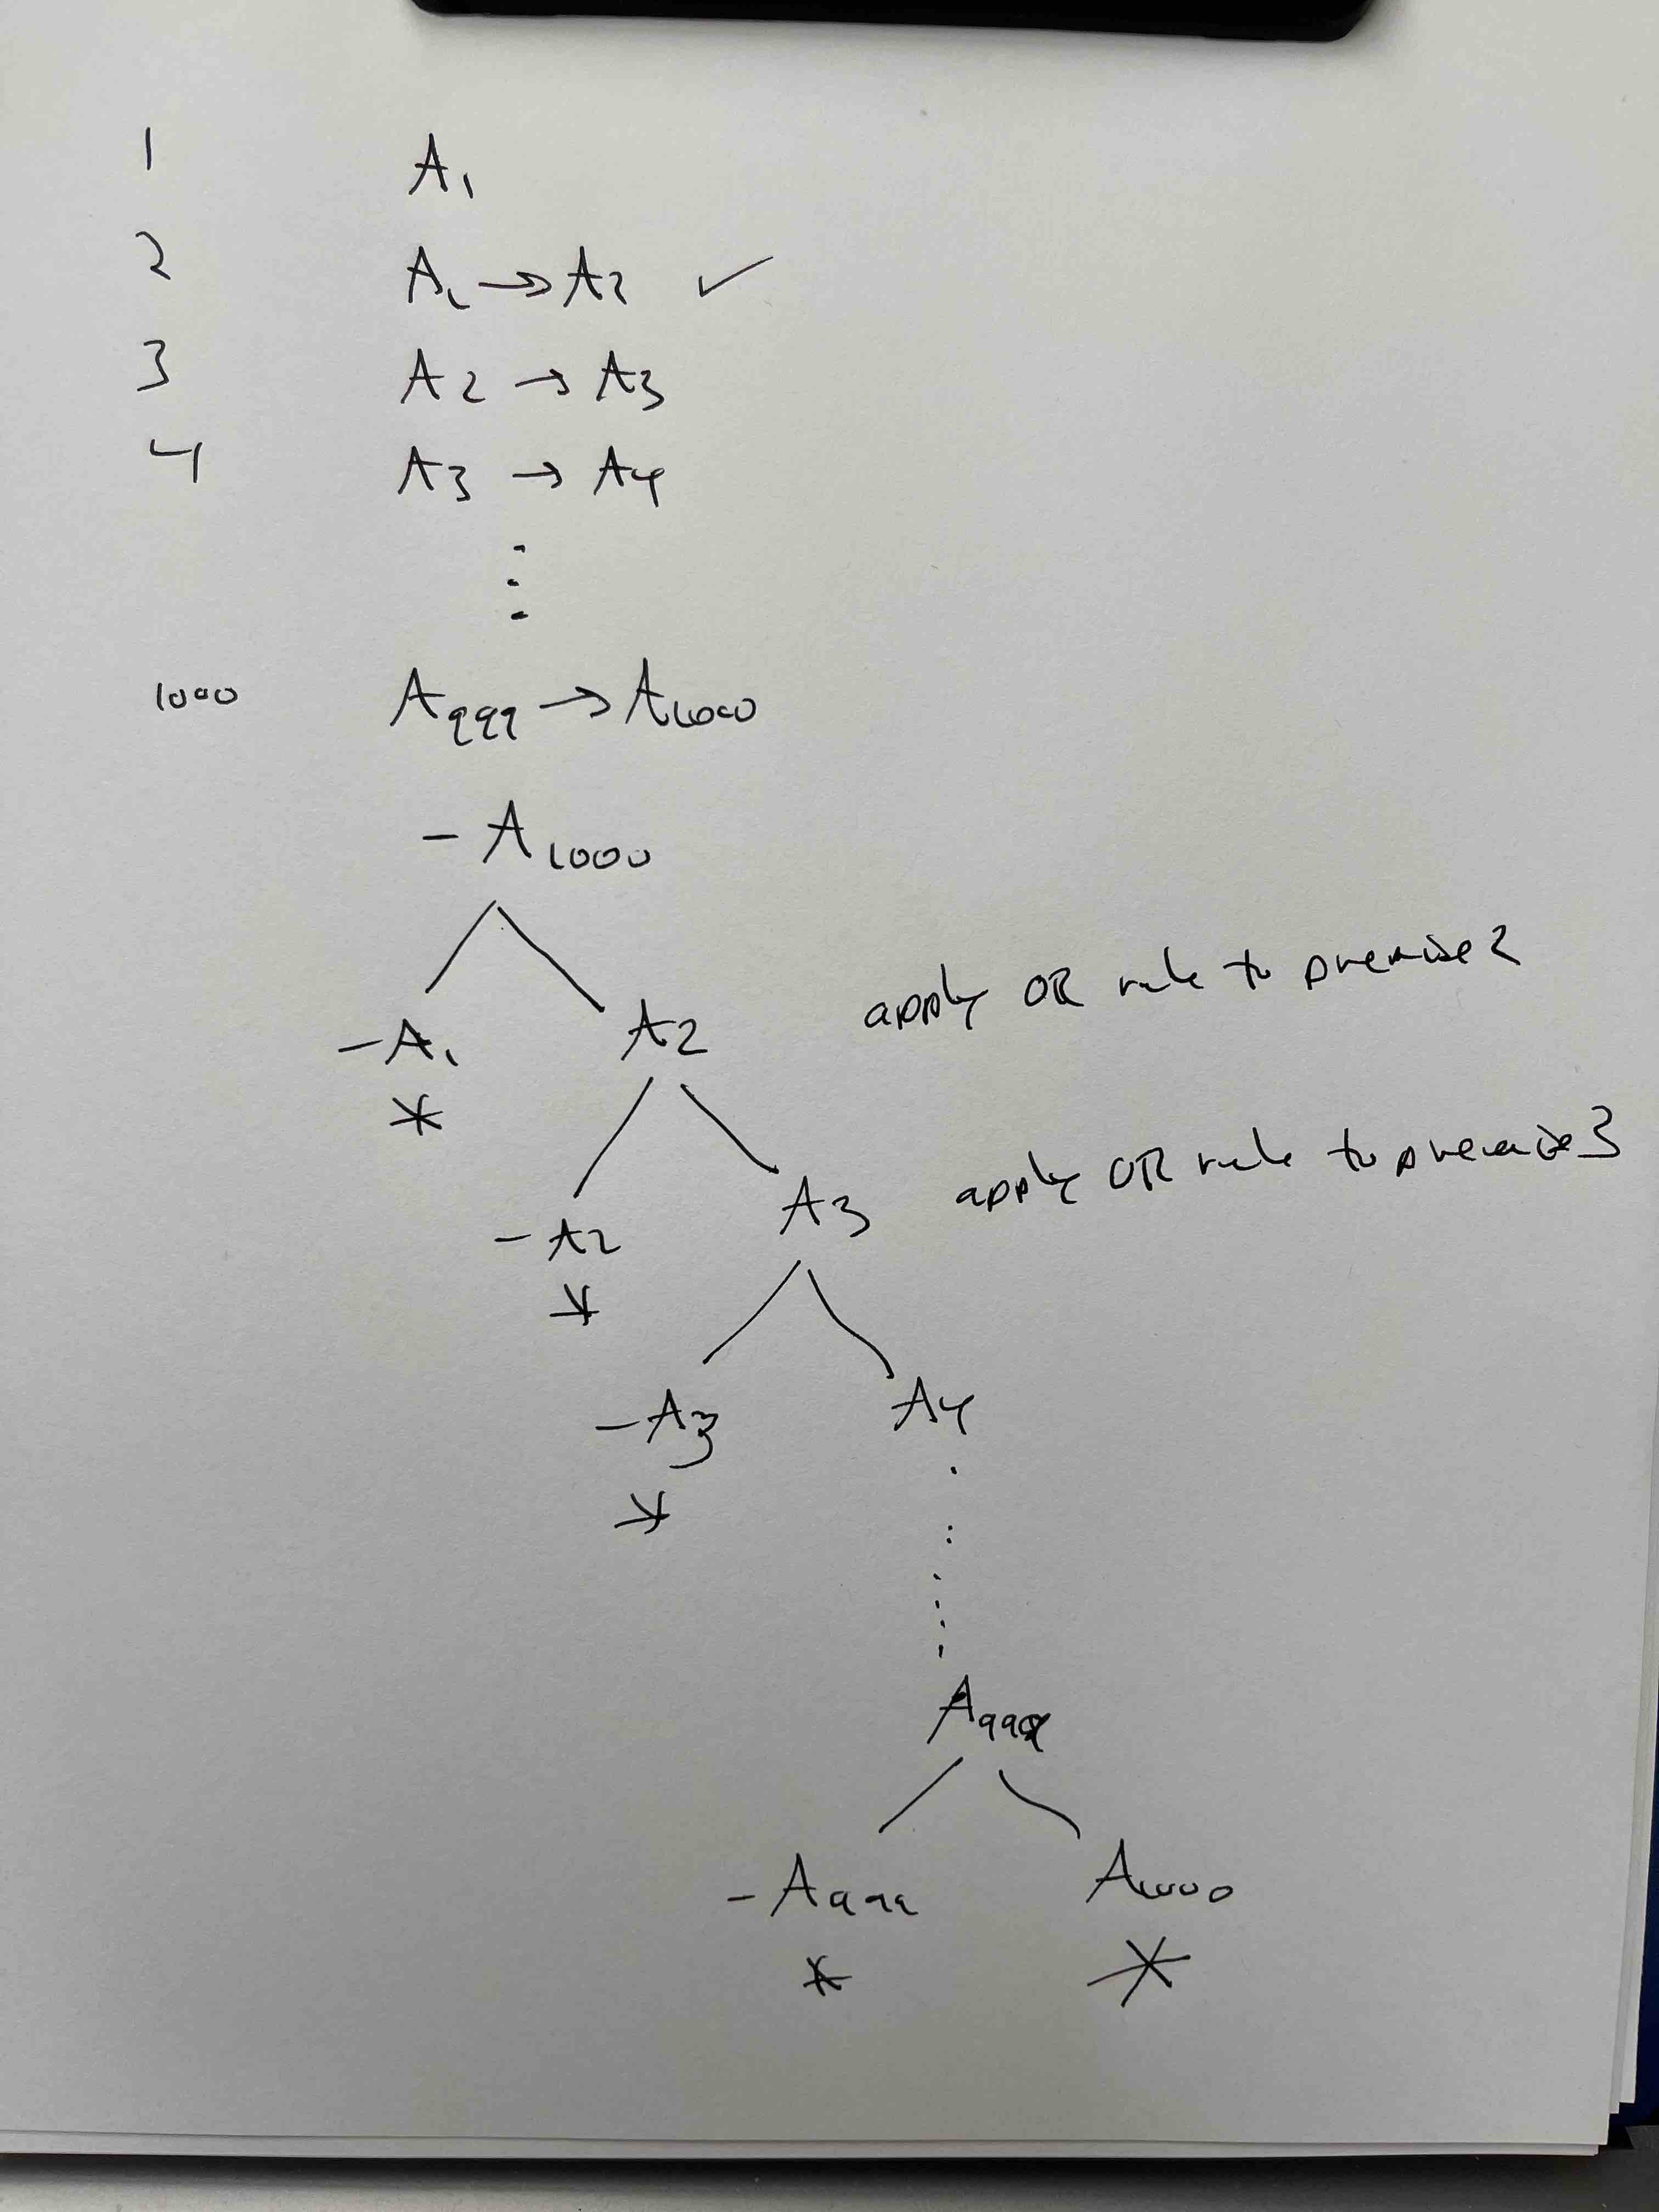 1 A₁
2 A₁ → A₂ ✓
3 A2 → A3
4 A3 → A4
⋮
1000 A999 → A1000
- A1000
-A₁ A2 apply OR rule to premise 2
*
-A2 A3 apply OR rule to premise 3
*
-A3 A4
*
⋮
A999
-A999 A1000
* *